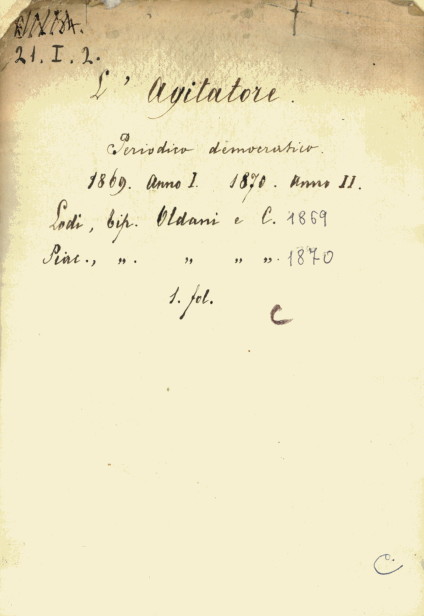 21. I. 2.
L' Agitatore.
Periodico democratico.
1869. Anno I. 1870. Anno II.
Lodi, Tip. Oldani e C. 1869
„ „ „ „. 1870
1. fol.
C
C.